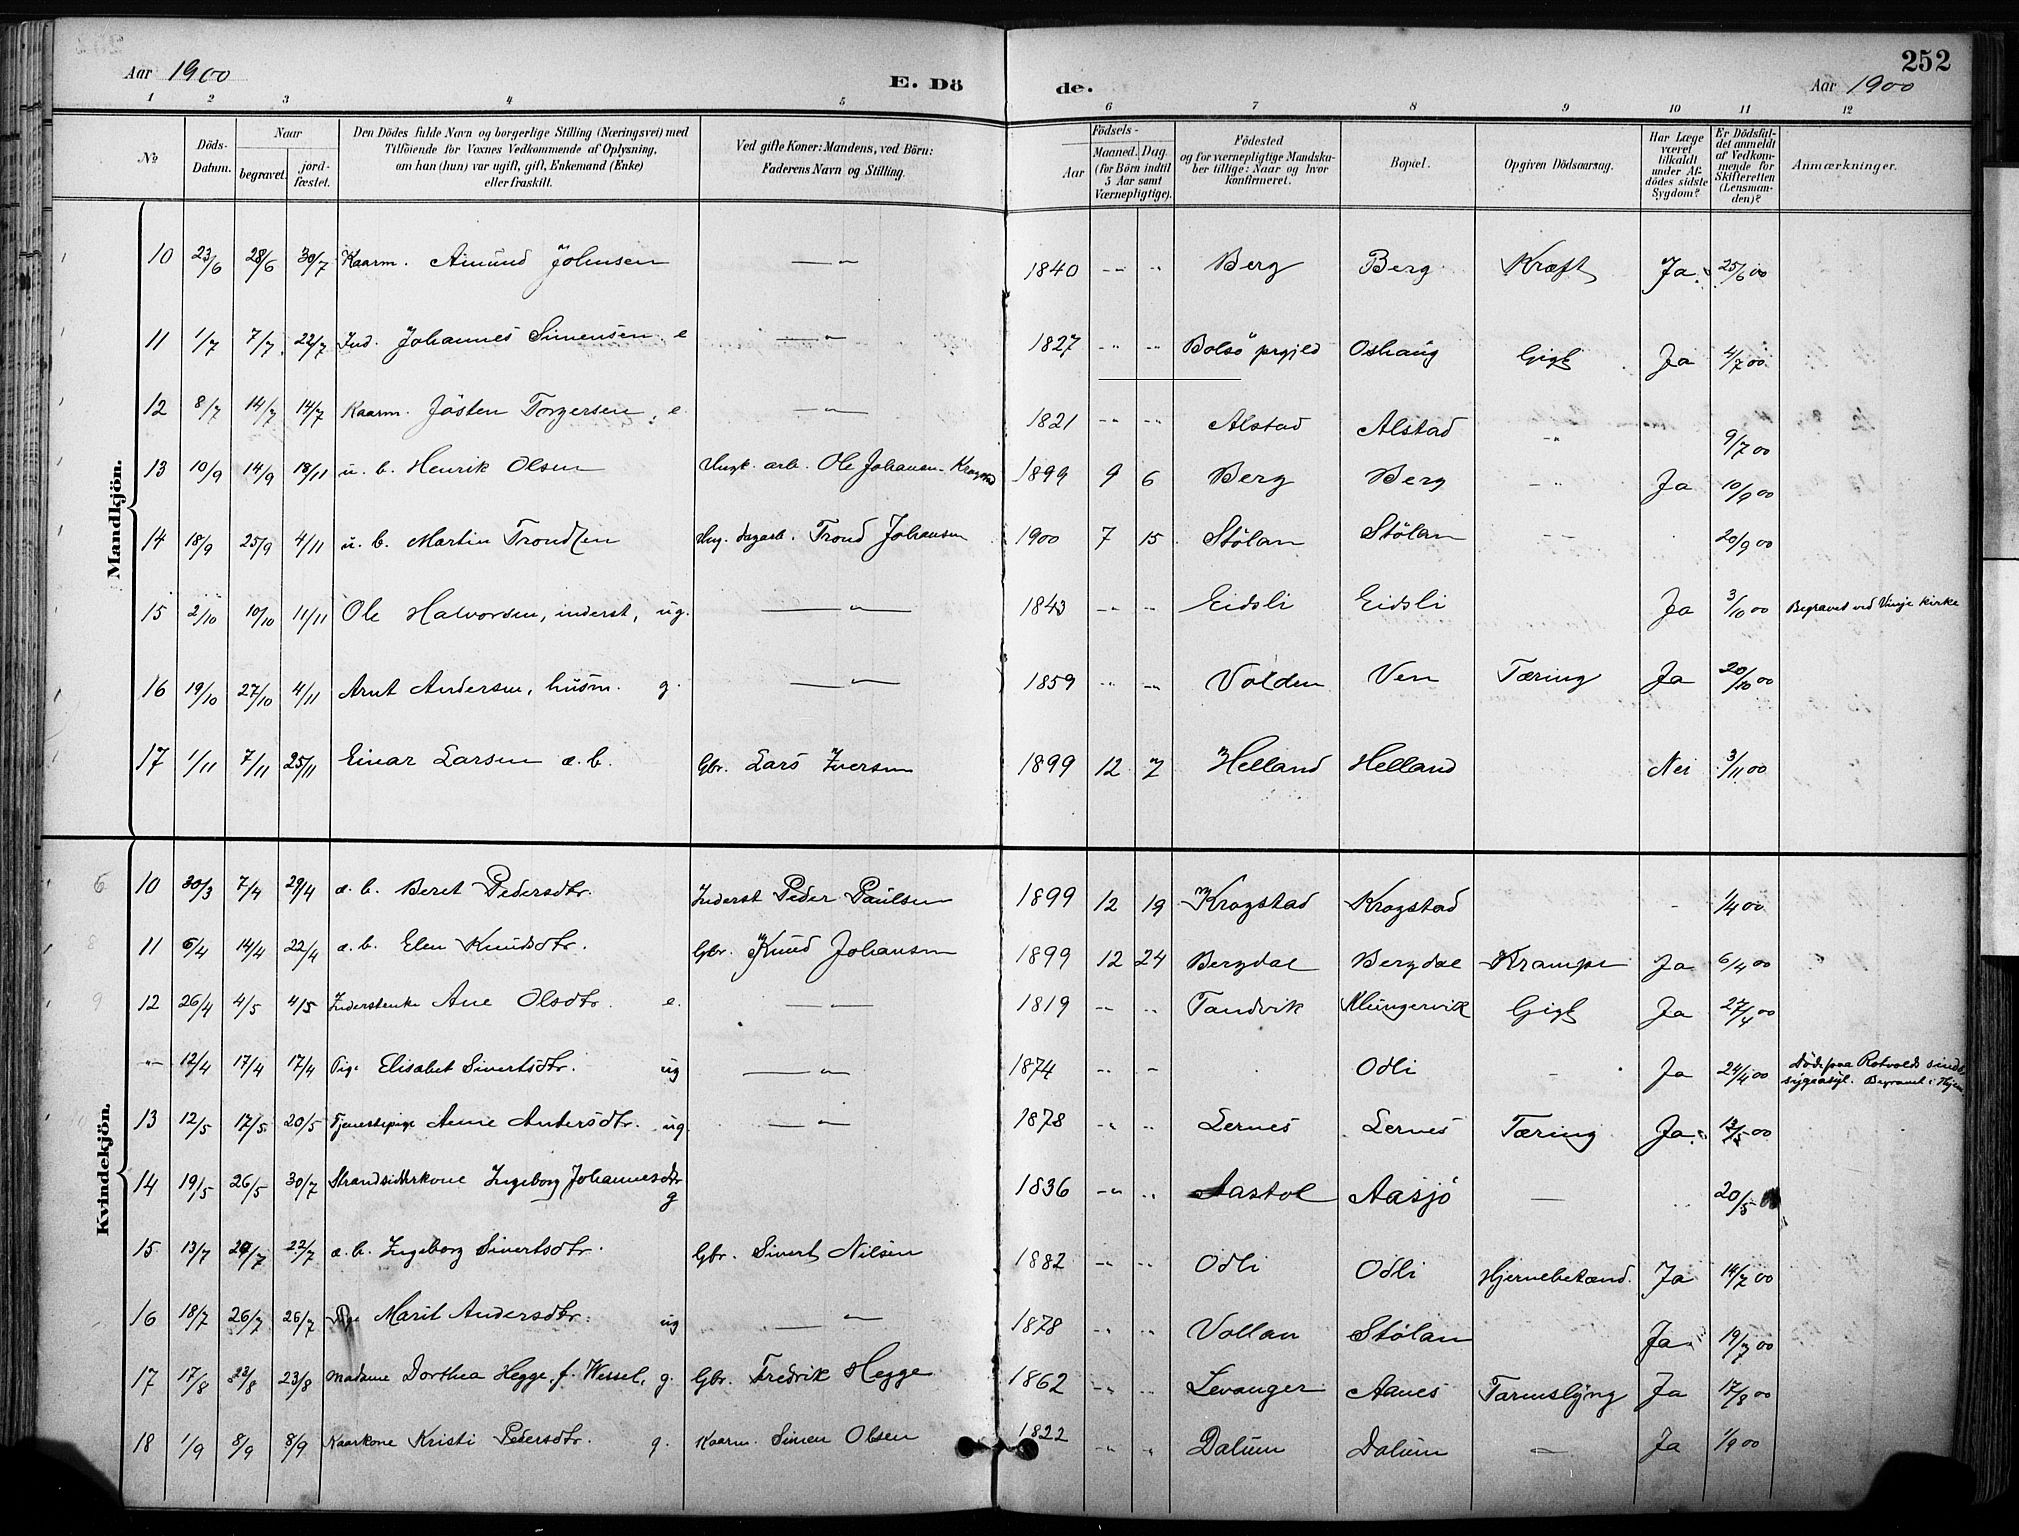 252
Aar 1900
E. Dö
de.
Aar 1900
1 2 3 4 5 6 7 8 9 10 11 12
№
Döds-Datum.
Naar
begravet.
jord-fæstet.
Den Dödes fulde Navn og borgerlige Stilling (Næringsvei) med
Tilföiende for Voxnes Vedkommende af Oplysning,
om han (hun) var ugift, gift, Enkemand (Enke)
eller fraskilt.
Ved gifte Koner: Mandens, ved Börn:
Faderens Navn og Stilling.
Födsels-
Aar
Maaned. Dag
(for Börn indtil 5 Aar samt Værnepligtige).
Födested
og for værnepligtige Mandskaber tillige: Naar og hvor konfirmeret.
Bopæl.
Opgiven Dödsaarsag.
Har Læge været tilkaldt under Afdödes sidste Sygdom?
Er Dödsfaldet anmeldt af Vedkommende for Skifteretten (Lensmanden)?
Anmærkninger.
Mandkjön.
10 23/6 28/6 30/7 Kaarm. Amund Johnsen — " 1840 -"- " Berg Berg Kræft Ja 25/6 00
11 1/7 7/7 22/7 Ind. Johannes Simensen e — " 1827 -"- -"- Bolsö prgjeld Oshaug Gigt Ja 4/7 00
12 8/7 14/7 14/7 Kaarm. Josten Torgersen, e. — " 1821 -"- -"- Alstad Alstad -"- 9/7 00
13 10/9 14/9 18/11 u. b. Henrik Olsen Ungk. arb. Ole Johansen Krogstad 1899 9 6 Berg Berg -"- Ja 10/9 00
14 18/9 25/9 4/11 u. b. Martin Trondsen Ung. dagarb. Trond Johansen 1900 7 15 Stölan Stölan -- 20/9 00
15 2/10 10/10 11/11 Ole Halvorsen, inderst, ug. — " 1843 -"- -"- Eidsli Eidsli Ja 3/10 00 Begravet ved Vinje kirke
16 19/10 27/10 4/11 Arnt Andersen, husm. g. — " 1859 -"- -"- Volden Ven Tæring Ja 20/10 00
17 1/11 7/11 25/11 Einar Larsen æ. b. Gbr. Lars Iversen 1899 12 7 Helland Helland Nei 3/11 00
Kvindekjön.
6 10 30/3 7/4 29/4 æ. b. Beret Pedersdtr. Inderst Peder Paulsen 1899 12 19 Krogstad Krogstad - 1/4 00
8 11 6/4 14/4 22/4 æ. b. Elen Knudsdtr. Gbr. Knud Johansen 1899 12 24 Bergdal Bergdal Krampe Ja 6/4 00
9 12 26/4 4/5 4/5 Inderstenke Ane Olsdtr. e. — " 1819 -"- " Tandvik Klungervik Gigt Ja 27/4 00
-"- 12/4 17/4 17/4 Pige Elisabet Sivertsdtr. ug — " 1874 -"- - Odli - Ja 24/4 00 Döde paa Rotvolds sindssygeasyl. Begravet i Hjem
13 12/5 17/5 20/5 Tjenestepige Anne Andersdtr. ug. — " 1878 -"- " Lernes Lernes Tæring Ja 13/5 00
14 19/5 26/5 30/7 Strandsidderkone Ingeborg Johannesdtr g 1836 -"- " Aastol Aasjö — 20/5
15 13/7 22/7 a. b. Ingeborg Sivertsdtr. Gbr. Sivert Nilsen 1882 -"- " Odli Odli Hjernebetænd. Ja 14/7 00
16 18/7 26/7 26/7 Pige Marit Andersdtr. ug — " 1878 -"- " Vollan Stölan Ja 19/7 00
17 17/8 23/8 23/8 Madame Dorthea Hegge, f. Wessel, g. Gbr. Fredrik Hegge 1862 -"- " Levanger Aanes Tarmslyng Ja 17/8 00
18 1/9 8/9 8/9 Kaarkone Kristi Pedersdtr. g. Kaarm. Simen Olsen 1822 -"- " Dalum Dalum — Ja 1/9 00